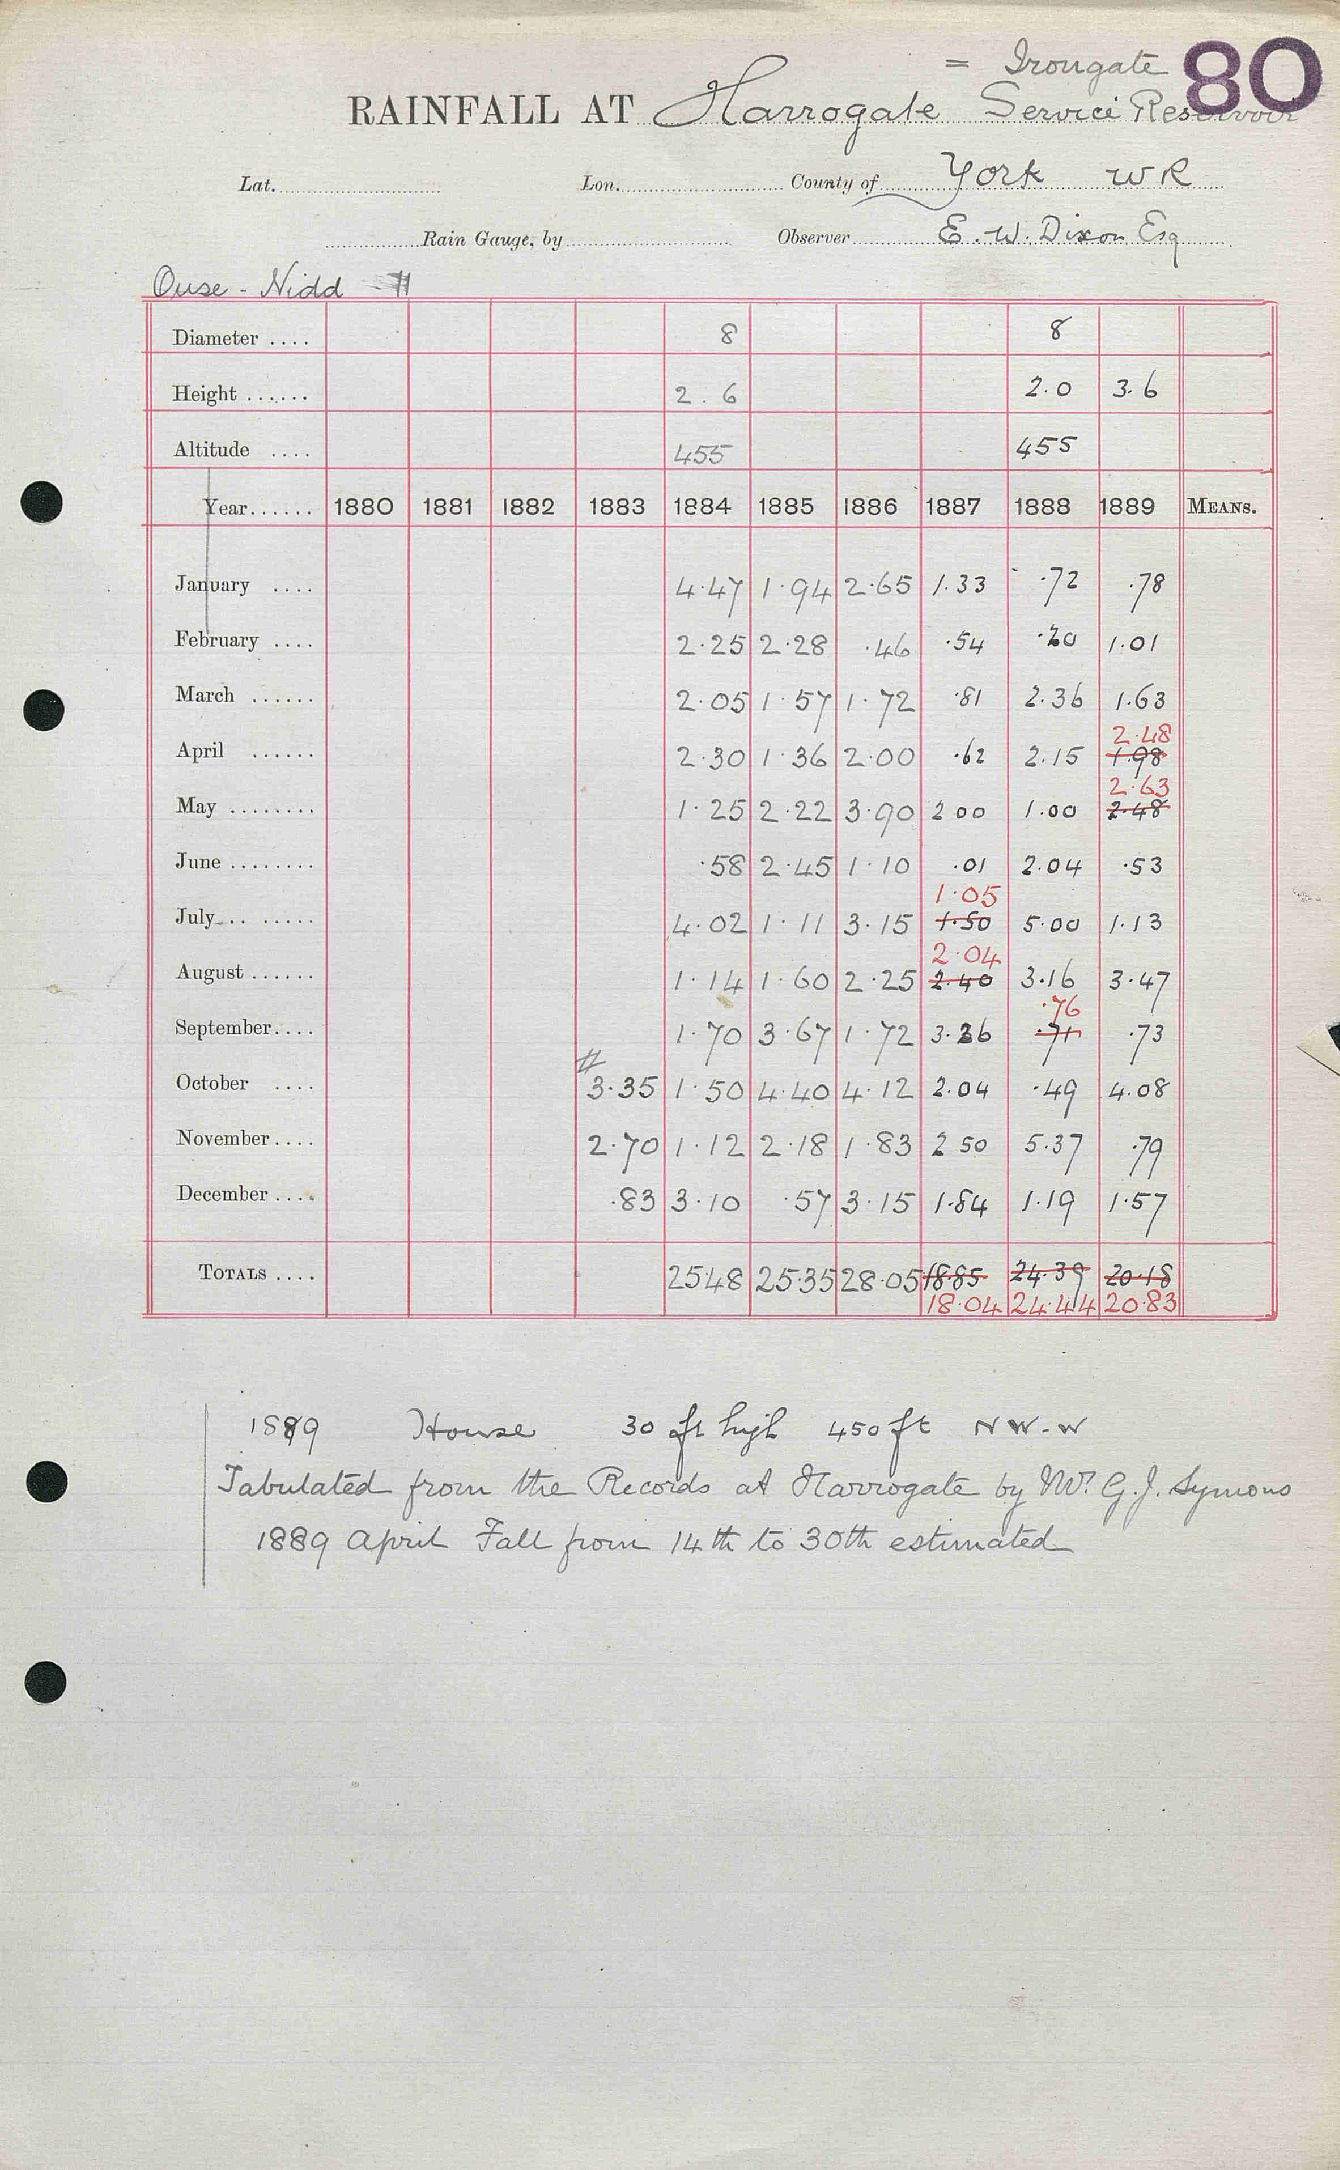 = Irongate 80
RAINFALL AT Harrogate Service Reservoir
Lat. Lon. County of York WR
Rain Gauge, by Observer E. W. Dixon Esq
Ouse - Nidd #
Diameter .... 8 8
Height ...... 2.6 2.0 3.6
Altitude .... 455 455
Year...... 1880 1881 1882 1883 1884 1885 1886 1887 1888 1889 MEANS.
January .... 4.47 1.94 2.65 1.33 .72 .78
February .... 2.25 2.28 .46 .54 .20 1.01
March ...... 2.05 1.57 1.72 .81 2.36 1.63
2.48
April ...... 2.30 1.36 2.00 .62 2.15 1.98
2.63
May ........ 1.25 2.22 3.90 2 00 1.00 2.48
June ........ .58 2.45 1.10 .01 2.04 .53
1.05
July.. ..... 4.02 1.11 3.15 1.50 5.00 1.13
2.04
August ...... 1.14 1.60 2.25 2.40 3.16 3.47
.76
September.... 1.70 3.67 1.72 3.26 .71 .73
#
October .... 3.35 1.50 4.40 4.12 2.04 .49 4.08
November.... 2.70 1.12 2.18 1.83 2 50 5.37 .79
December .... .83 3.10 .57 3.15 1.84 1.19 1.57
TOTALS .... 25.48 25.35 28.05 18.85 24.39 20.18
18.04 24.44 20.83
1889 House 30 ft high 450 ft NW-W
Tabulated from the Records at Harrogate by Mr. G. J. Symons
1889 April Fall from 14th to 30th estimated